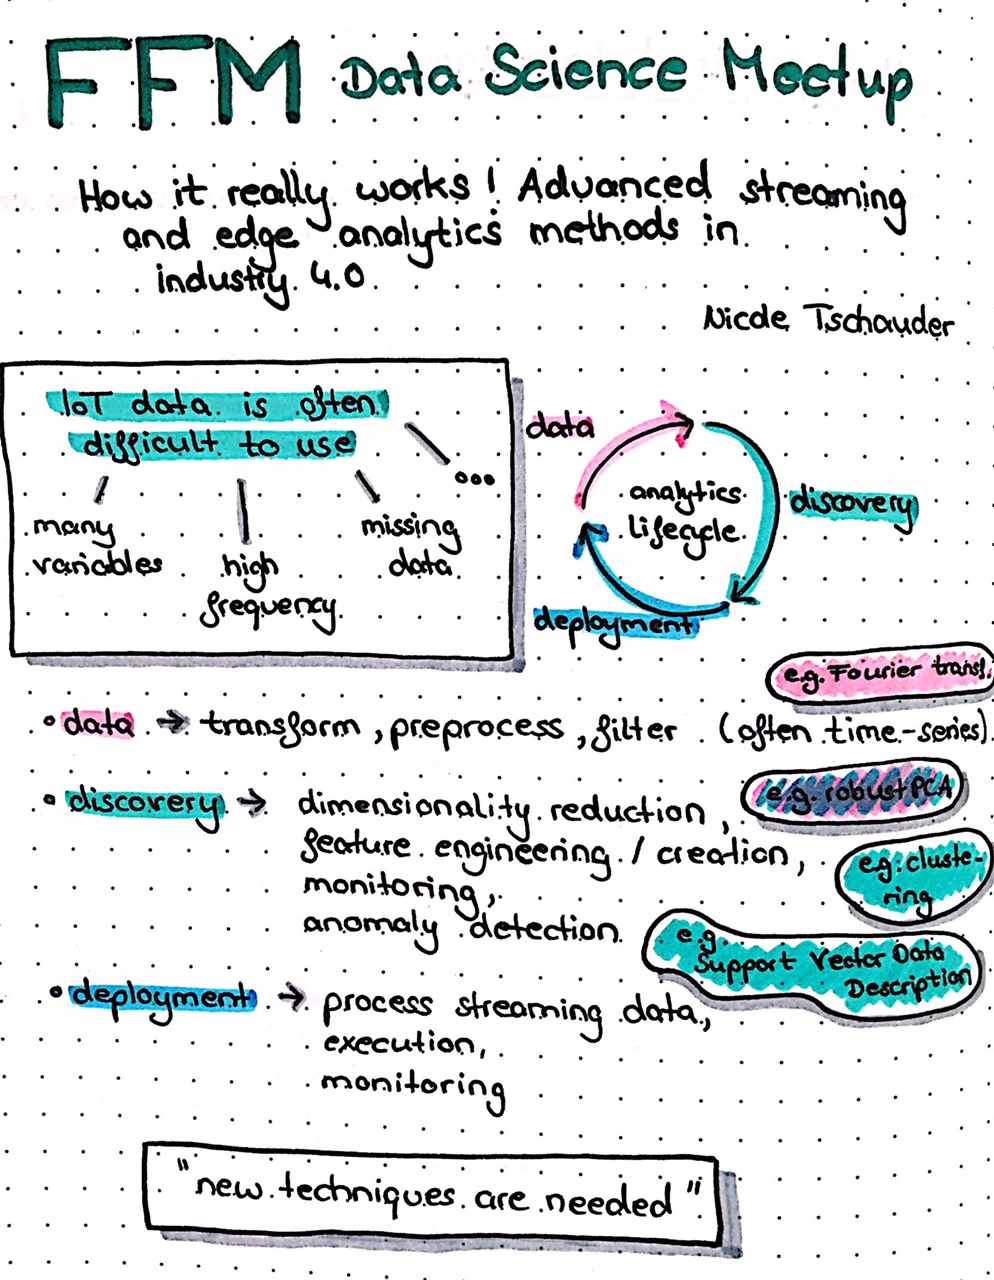 FFM Data Science Meetup
How it really works! Advanced streaming
and edge analytics methods in
industry 4.0
Nicole Tschauder
IoT data is often
difficult to use
...
many
variables
high
frequency
missing
data
data
analytics
lifecycle
discovery
deployment
e.g. Fourier transf.
• data → transform, preprocess, filter (often time-series)
e.g. robust PCA
• discovery → dimensionality reduction,
feature engineering / creation,
e.g. cluste-
ring
monitoring,
anomaly detection
e.g.
Support Vector Data
Description
• deployment → process streaming data,
execution,
monitoring
"new techniques are needed"